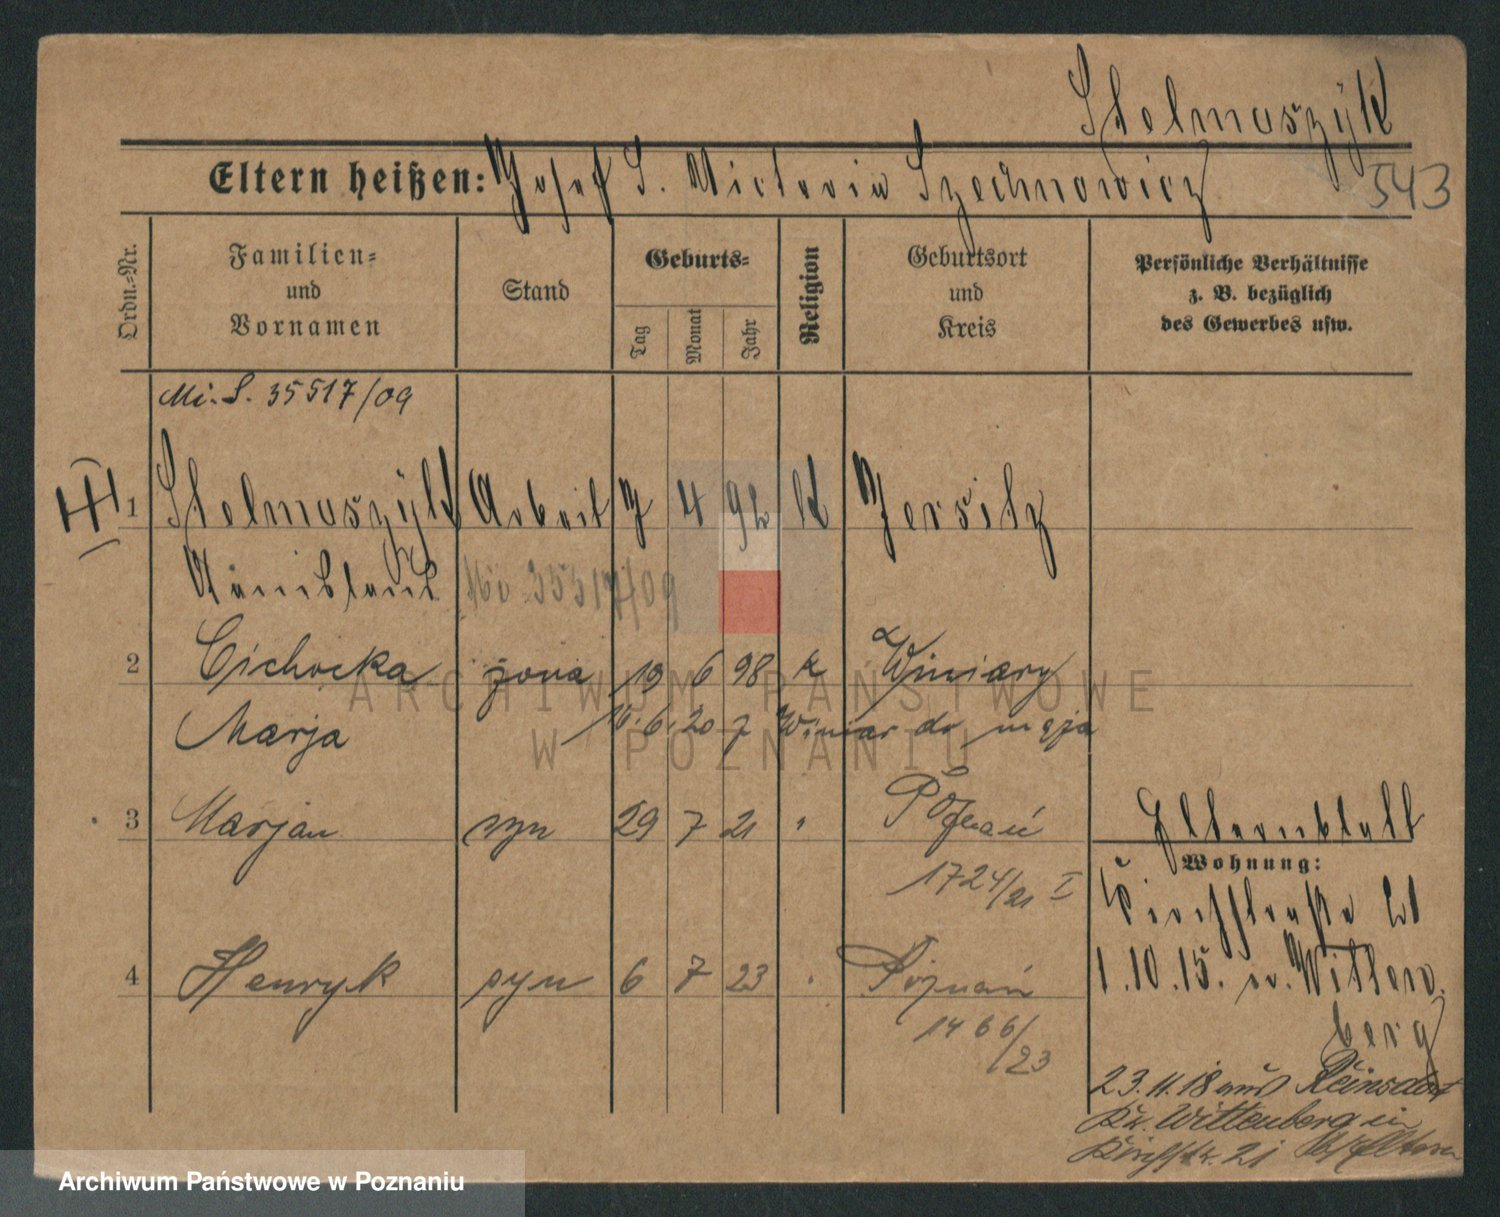 Stelmaszyk
Eltern heißen: Josef S. Victoria Szechnowicz
543
Ordn.-Nr.
Familien- und Vornamen
Stand
Geburts-
Tag
Monat
Jahr
Religion
Geburtsort und Kreis
Persönliche Verhältnisse
z. B. bezüglich
des Gewerbes usw.
Mi. S. 35517/09
1 Stelmaszyk Arbeit 7 4 92 K Jersitz
Stanislaus Mi 35517/09
2 Cichocka żona 19 6 98 k Winiary
Marja 16. 6. 20 z Winiar do męża
3 Marjan syn 29 7 21 " Poznań
1724/21 I
Elternblatt
Wohnung:
Kirchstraße 21
4 Henryk syn 6 7 23 " Poznań
1466/23
1.10.15. n. Wittenberg
23.11.18 aus Reinsdorf
Kr. Wittenberg in
Kirchstr. 21 Eltern
ARCHIWUM PAŃSTWOWE
W POZNANIU
Archiwum Państwowe w Poznaniu